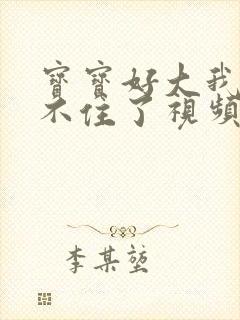 寶寶好大我
不住了視頻
李某堃